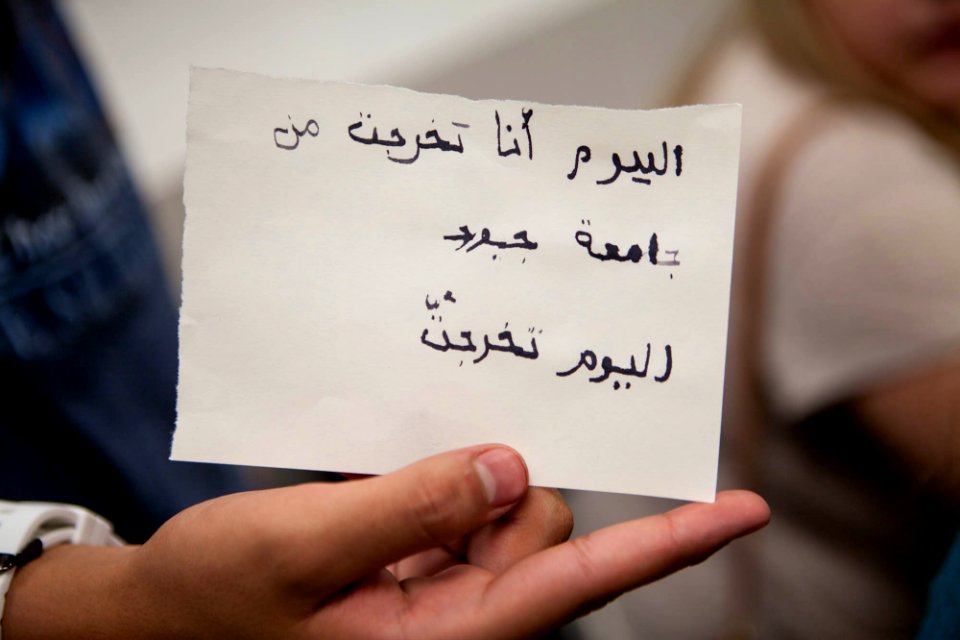 اليوم أنا تخرجت من
جامعة جيود
اليوم تخرجتُّ